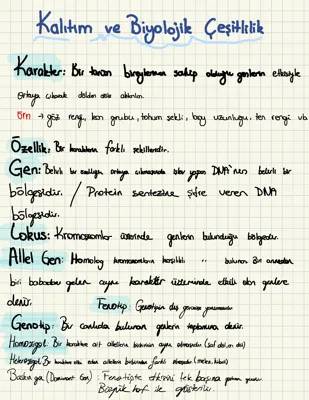 Kalıtım ve Biyolojik Çeşitlilik
Karakter: Bir canlının bireylerinin sahip olduğu genlerin etkisiyle
ortaya çıkarak dölden döle aktarılan.
örn → göz rengi, kan grubu, tohum şekli, boy uzunluğu, ten rengi vb
Özellik: Bir karakterin farklı şekilleridir.
Gen: Belirli bir özelliğin ortaya çıkmasında işlev yapan DNA'nın belirli bir
bölgesidir. / Protein sentezine şifre veren DNA
bölgesidir.
Lokus: Kromozomlar üzerinde genlerin bulunduğu bölgedir.
Allel Gen: Homolog kromozomların karşılıklı bulunan Biri anneden
biri babadan gelen aynı karakter üzerinde etkili olan genlere
denir. Fenotip: Genotipin dış görünüşe yansımasıdır
Genotip: Bir canlıda bulunan genlerin toplamına denir.
Homozigot: Bir karaktere ait allellerin birbirinin aynı olmasıdır
Heterozigot: Bir karakter allellerin birbirinden farklı olmasıdır (melez, hibrit)
Baskın gen (Dominant Gen): Fenotipte etkisini tek başına gösteren
Büyük harf ile gösterilir.